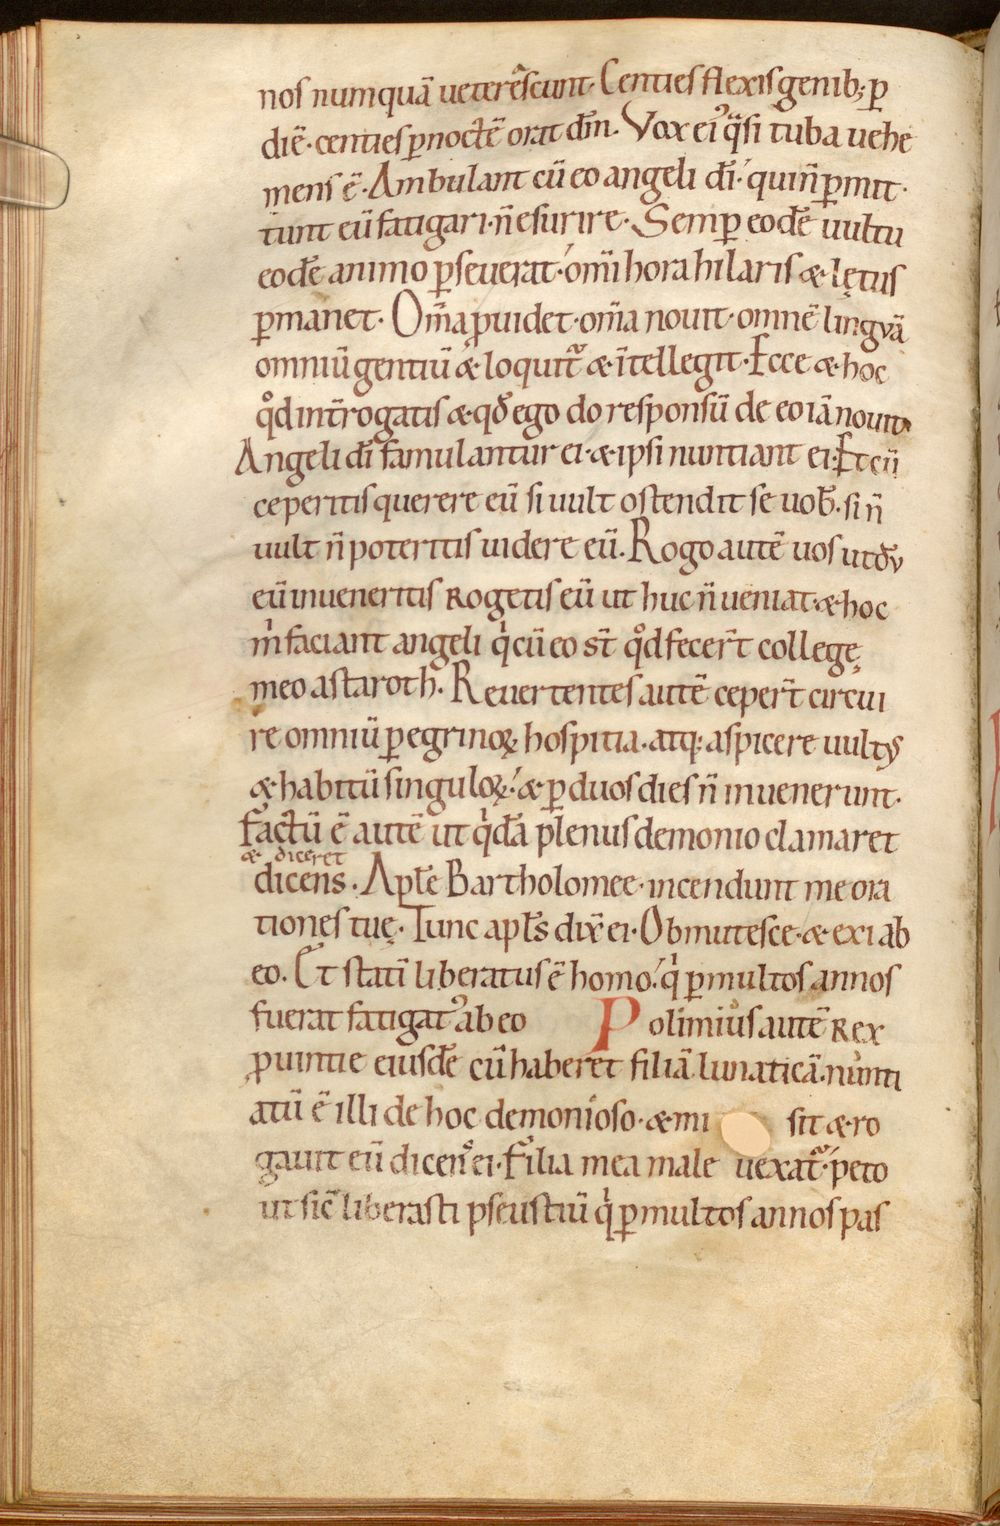 nos numquā ueterēscunt· Centies flexis genib; p̲
diē· centies p̲noctē orat dn̄m· Vox ei᾿ q̄si tuba uehe
mens ē· Ambulant cū eo angeli dī· qui n̄ p̲mit·
tunt eū fatigari· n̄ esurire· Semp̲ eodē uultu
eodē animo p̲seuerat· om̄i hora hilaris & lętus
p̲manet· Om̄a p̲uidet· om̄a nouit· omnē lingvā
omniū gentiū & loquit᷑ & īntellegit· Ecce & hoc
qͦd int̄rogatis & qđ ego do responsū de eo iā nouit·
Angeli dī famulantur ei· & ipsi nuntiant ei· Et cū
ceperitis querere eū si uult ostendit se uob̄· si n̄
uult n̄ poteritis uidere eū. Rogo autē uos ut dū
eū inueneritis Rogetis eū ut huc n̄ ueniat· & hoc
m̍ faciant angeli q̍ cū eo st̄ qͦd fecer̄t collegę
meo astaroth. Reuertentes autē ceper̄t circui
re omniū p̲egrinoꝝ hospitia· atq; aspicere uultꝰ
& habitū singuloꝝ· & p̲ duos dies n̄ inuenerunt·
Factū ē autē ut q̍dā plenus demonio clamaret
& diceret
dicens· Apłe Bartholomee· incendunt me ora
tiones tuę· Tunc apłs dix̄ ei· Obmutesce· & exi ab
eo. Et statī liberatus ē homo· q̍ p̲ multos annos
fuerat fatigat᾿ ab eo Polimius autē Rex
p̲uintie eiusdē cū haberet filiā lunaticā· nunti
atū ē illi de hoc demonioso· & mi sit & ro
gauit eū dicens̄ ei· Filia mea male uexat᷑· peto
ut sic̄ liberasti pseustiū q̍ p̲ multos annos pas